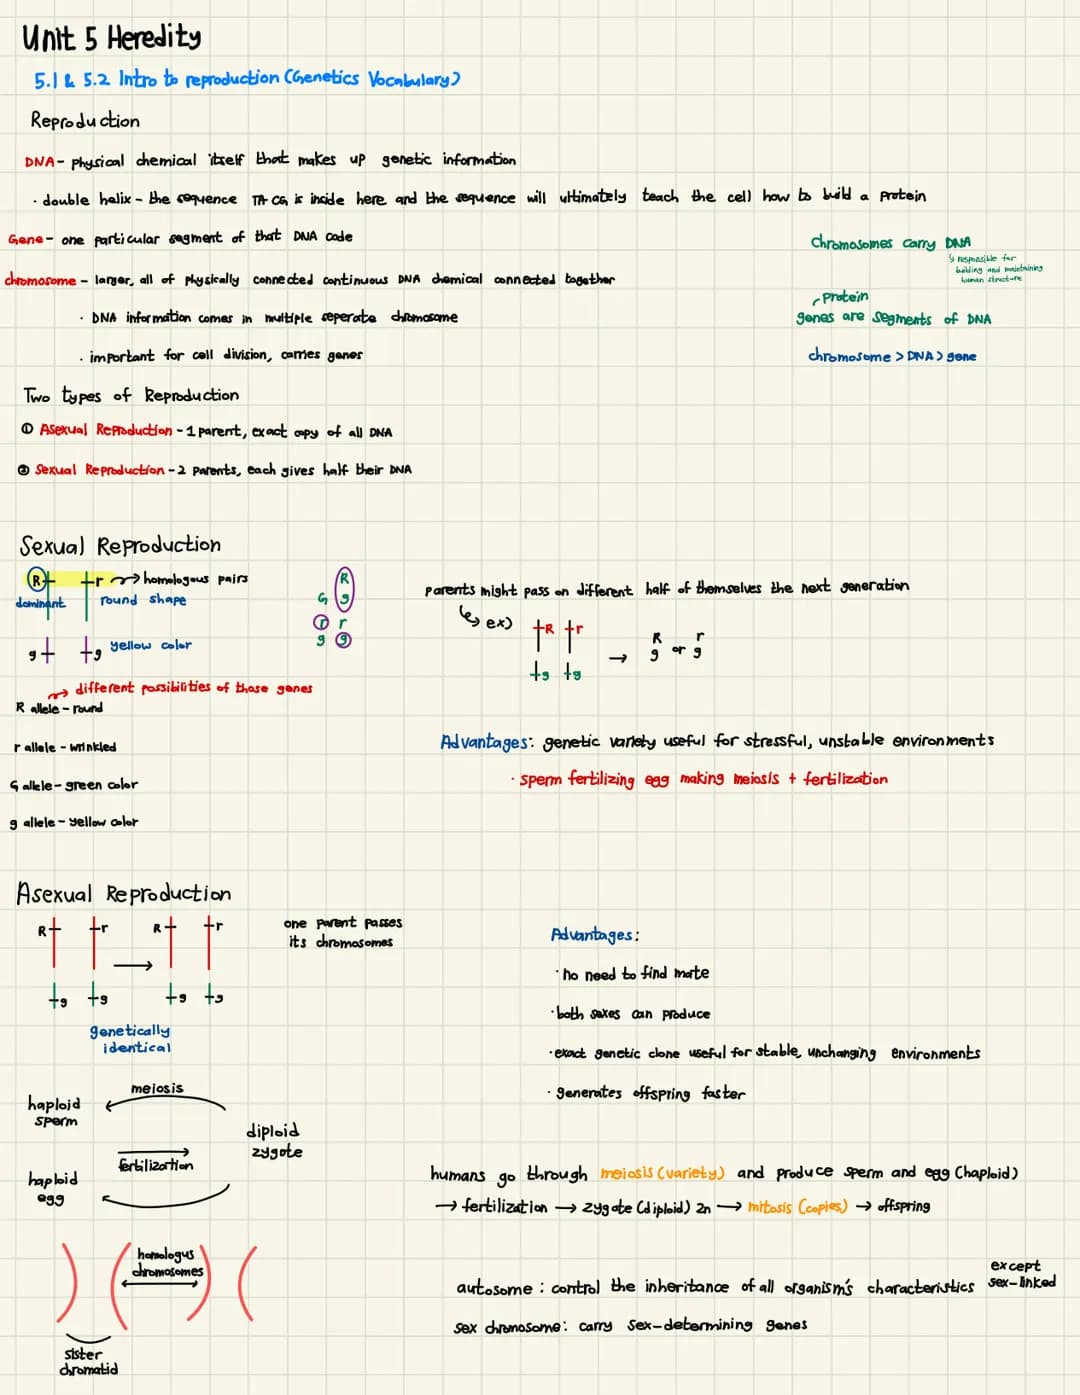 Unit 5 Heredity
5.1 & 5.2 Intro to reproduction (Genetics Vocabulary)
Reproduction
DNA - physical chemical itself that makes up genetic information
· double helix - the sequence TA CG is inside here and the sequence will ultimately teach the cell how to build a protein
Gene - one particular segment of that DNA code
chromosome - larger, all of physically connected continuous DNA chemical connected together
· DNA information comes in multiple seperate chromosome
· important for cell division, carries genes
Chromosomes carry DNA
↳ responsible for
building and maintaining
human structure
protein
genes are segments of DNA
chromosome > DNA > gene
Two types of Reproduction
① Asexual Reproduction - 1 parent, exact copy of all DNA
② Sexual Reproduction - 2 parents, each gives half their DNA
Sexual Reproduction
R r → homologous pairs
dominant round shape
g g yellow color
R
G g
r r
g g
→ different possibilities of those genes
R allele - round
r allele - wrinkled
G allele - green color
g allele - yellow color
parents might pass on different half of themselves the next generation
↳ ex) R r
g g → R g or r g
Advantages: genetic variety useful for stressful, unstable environments
· sperm fertilizing egg making meiosis + fertilization
Asexual Reproduction
R r → R r
g g g g
genetically
identical
one parent passes
its chromosomes
Advantages:
· no need to find mate
· both sexes can produce
· exact genetic clone useful for stable, unchanging environments
· generates offspring faster
meiosis
haploid
sperm
diploid
zygote
fertilization
haploid
egg
humans go through meiosis (variety) and produce sperm and egg (haploid)
→ fertilization → zygote (diploid) 2n → mitosis (copies) → offspring
homologus
chromosomes
sister
chromatid
autosome : control the inheritance of all organism's characteristics except
sex-linked
sex chromosome: carry sex-determining genes